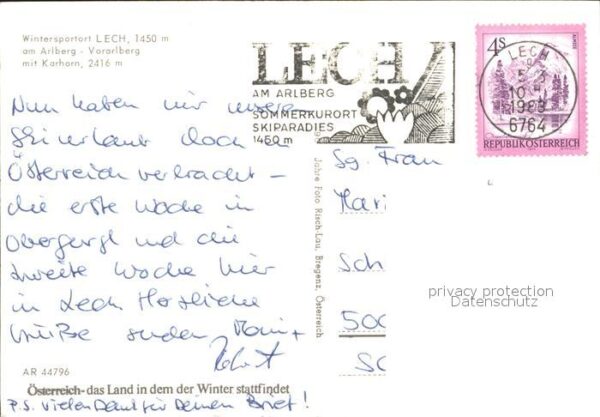 Wintersportort LECH, 1450 m
am Arlberg - Vorarlberg
mit Karhorn, 2416 m
LECH
AM ARLBERG
SOMMERKURORT
SKIPARADIES
1450 m
4S
LECH
6764
REPUBLIK ÖSTERREICH
Nun haben wir unseren
Skiurlaub doch in
Österreich verbracht -
die erste Woche in
Obergurgl und die
zweite Woche hier
in Lech Herzliche
Grüße senden
AR 44796
Österreich - das Land in dem der Winter stattfindet
P.S. Vielen Dank für Deinen Brief!
Jahre Foto Risch-Lau, Bregenz, Österreich
Frau
Mari
Sch
500
privacy protection
Datenschutz